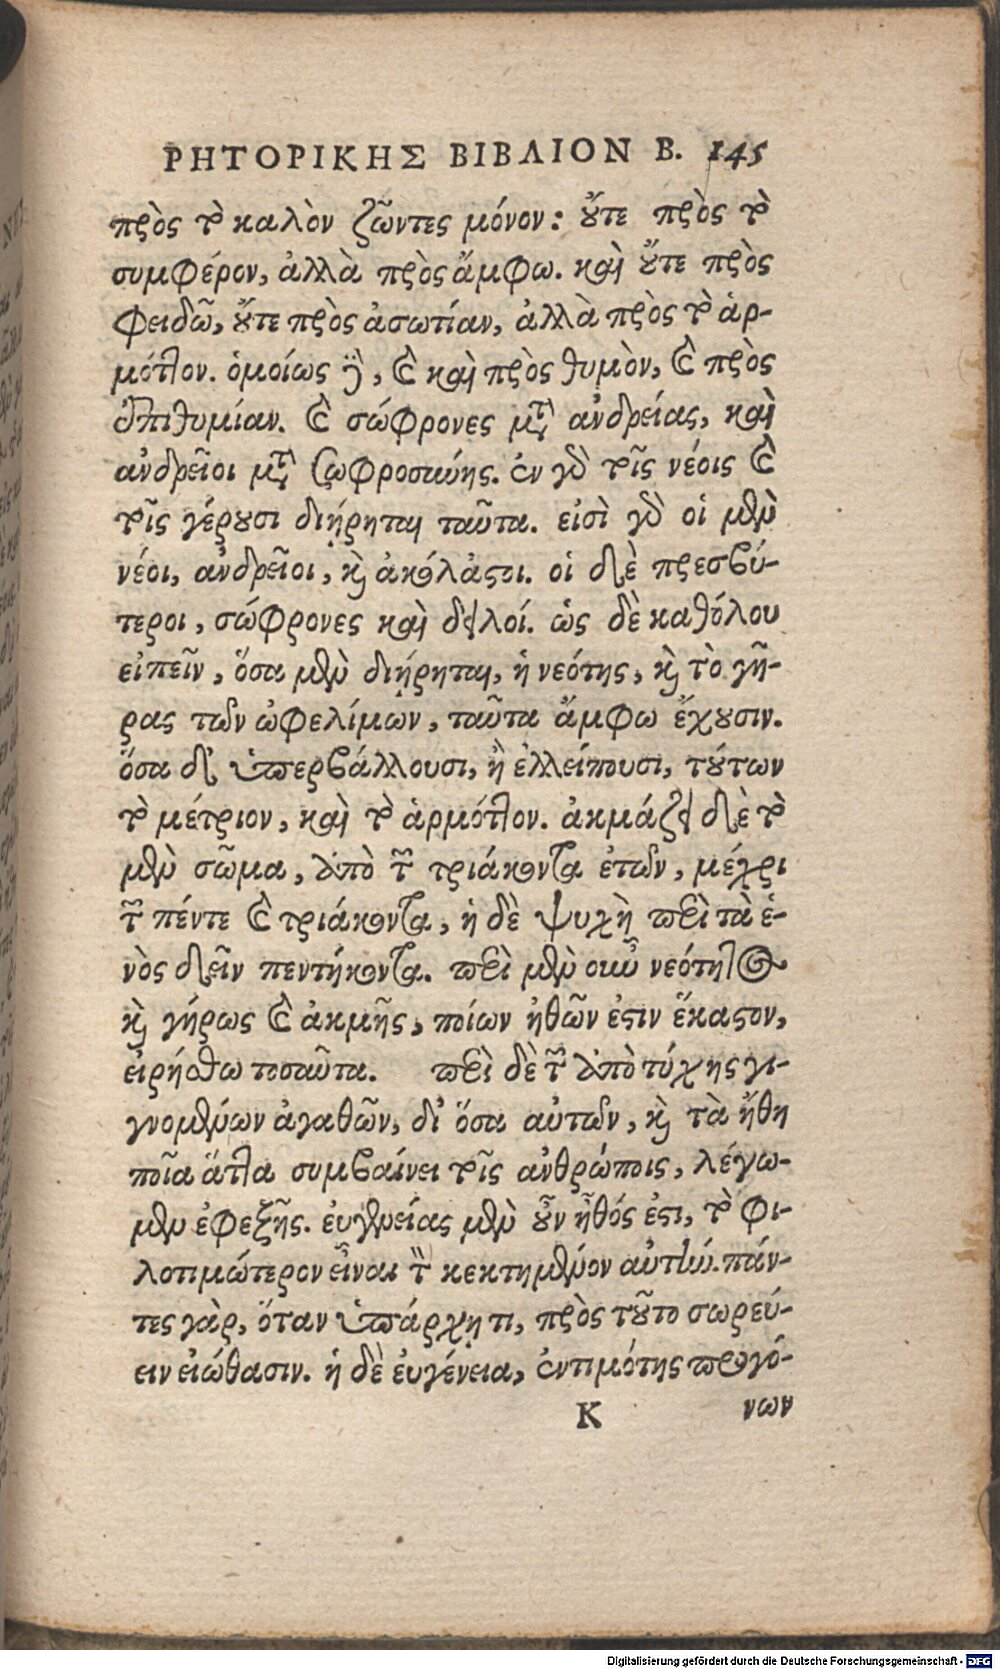 ΡΗΤΟΡΙΚΗΣ ΒΙΒΛΙΟΝ Β. 145
πρὸς τὸ καλὸν ζῶντες μόνον: οὔτε πρὸς τὸ
συμφέρον, ἀλλὰ πρὸς ἄμφω. καὶ οὔτε πρὸς
φειδῶ, οὔτε πρὸς ἀσωτίαν, ἀλλὰ πρὸς τὸ ἁρ-
μότ]ον. ὁμοίως δὲ, καὶ καὶ πρὸς θυμὸν, καὶ πρὸς
ἐπιθυμίαν. καὶ σώφρονες μετὰ ἀνδρείας, καὶ
ἀνδρεῖοι μετὰ σωφροσύνης. ἐν γὰρ τοῖς νέοις καὶ
τοῖς γέρουσι διῄρηται ταῦτα. εἰσὶ γὰρ οἱ μὲν
νέοι, ἀνδρεῖοι, καὶ ἀκόλαστοι. οἱ δὲ πρεσβύ-
τεροι, σώφρονες καὶ δειλοί. ὡς δὲ καθόλου
εἰπεῖν, ὅσα μὲν διῄρηται, ἡ νεότης, καὶ τὸ γῆ-
ρας τῶν ὠφελίμων, ταῦτα ἄμφω ἔχουσιν.
ὅσα δ' ὑπερβάλλουσι, ἢ ἐλλείπουσι, τούτων
τὸ μέτριον, καὶ τὸ ἁρμόττον. ἀκμάζει δὲ τὸ
μὲν σῶμα, ἀπὸ τῶν τριάκοντα ἐτῶν, μέχρι
τῶν πέντε καὶ τριάκοντα, ἡ δὲ ψυχὴ περὶ τὰ ἑ-
νὸς δεῖν πεντήκοντα. περὶ μὲν οὖν νεότητος
καὶ γήρως καὶ ἀκμῆς, ποίων ἠθῶν ἐστιν ἕκαστον,
εἰρήσθω τοσαῦτα. περὶ δὲ τῶν ἀπὸ τύχης γι-
γνομένων ἀγαθῶν, δι' ὅσα αὐτῶν, καὶ τὰ ἤθη
ποῖα ἄττα συμβαίνει τοῖς ἀνθρώποις, λέγω-
μεν ἐφεξῆς. εὐγενείας μὲν οὖν ἦθός ἐστι, τὸ φι-
λοτιμώτερον εἶναι τὸν κεκτημένον αὐτήν. πάν-
τες γὰρ, ὅταν ὑπάρχῃ τι, πρὸς τοῦτο σωρεύ-
ειν εἰώθασιν. ἡ δὲ εὐγένεια, ἐντιμότης προγό-
Κ νων
Digitalisierung gefördert durch die Deutsche Forschungsgemeinschaft - DFG